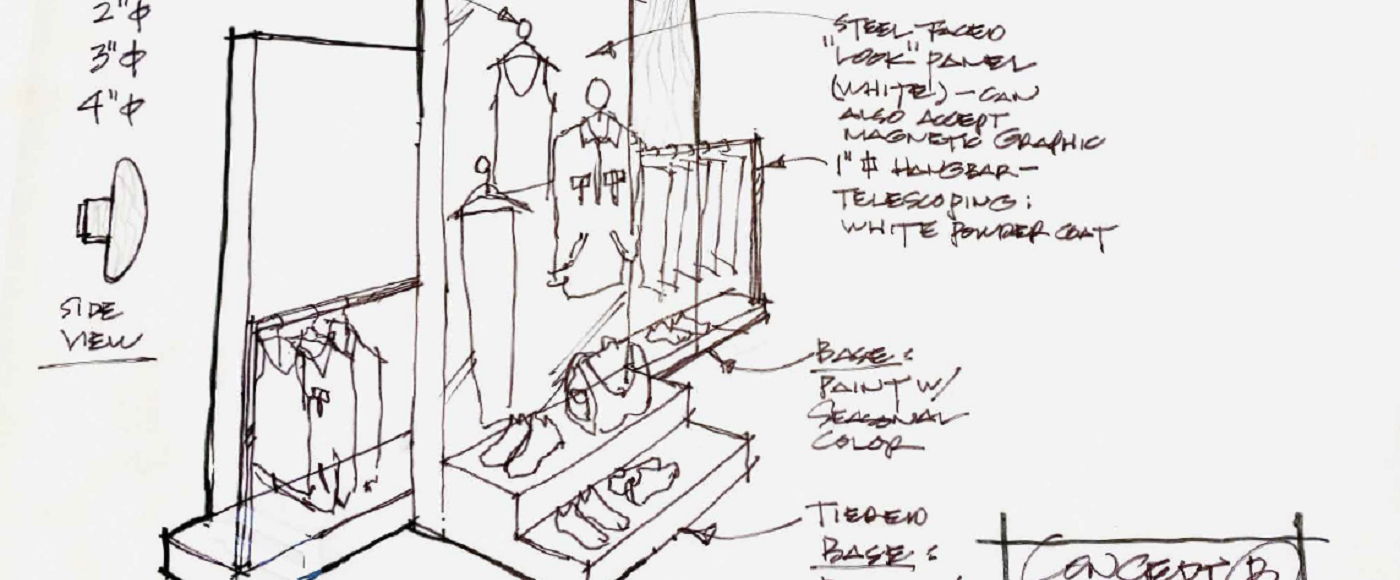 2"⌀
3"⌀
4"⌀
SIDE
VIEW
STEEL-FACED
"LOOK" PANEL
(WHITE) - CAN
ALSO ACCEPT
MAGNETIC GRAPHIC
1" ⌀ HANGBAR -
TELESCOPING:
WHITE POWDER COAT
BASE:
PAINT W/
SEASONAL
COLOR
TIERED
BASE:
CONCEPT B